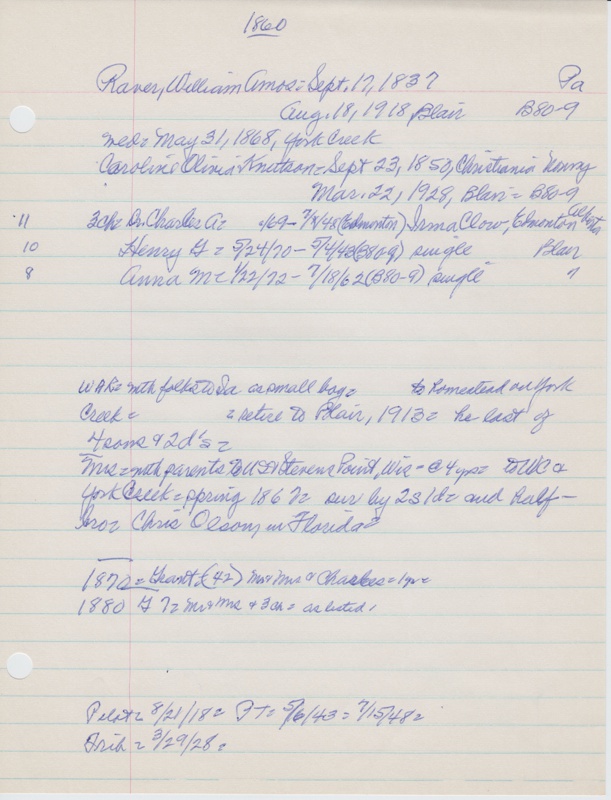 1860
Raver, William Amos = Sept. 17, 1837 Pa
Aug. 18, 1918 Blair B80-9
med = May 31, 1868, York Creek
Caroline Olivia Knutson = Sept 23, 1850, Christiania Norway
Mar. 22, 1928, Blair = B80-9
11 3ch = Dr. Charles A = /69 - 7/8/48 (Edmonton) Irma Clow, Edmonton Alberta
10 Henry G = 5/24/70 - 5/4/43 (B80-9) single Blair
8 Anna M = 1/22/72 - 7/18/62 (B80-9) single "
WAR = with folks to Ia as small boy = to homestead on York
Creek = = retire to Blair, 1913 = he last of
4 sons & 2 d's =
Mrs = with parents to Stevens Point, Wis - @ 4 yrs = to
York Creek = spring 1867 = surv by 2s 1d = and half-
bro = Chris Olson, in Florida =
1870 = Grant (42) Mr & Mrs & Charles = 1yr =
1880 G 7 = Mr & Mrs & 3ch = as listed
Pilot = 8/21/18 = FT = 5/6/43 = 7/15/48 =
Trib = 3/29/28 =